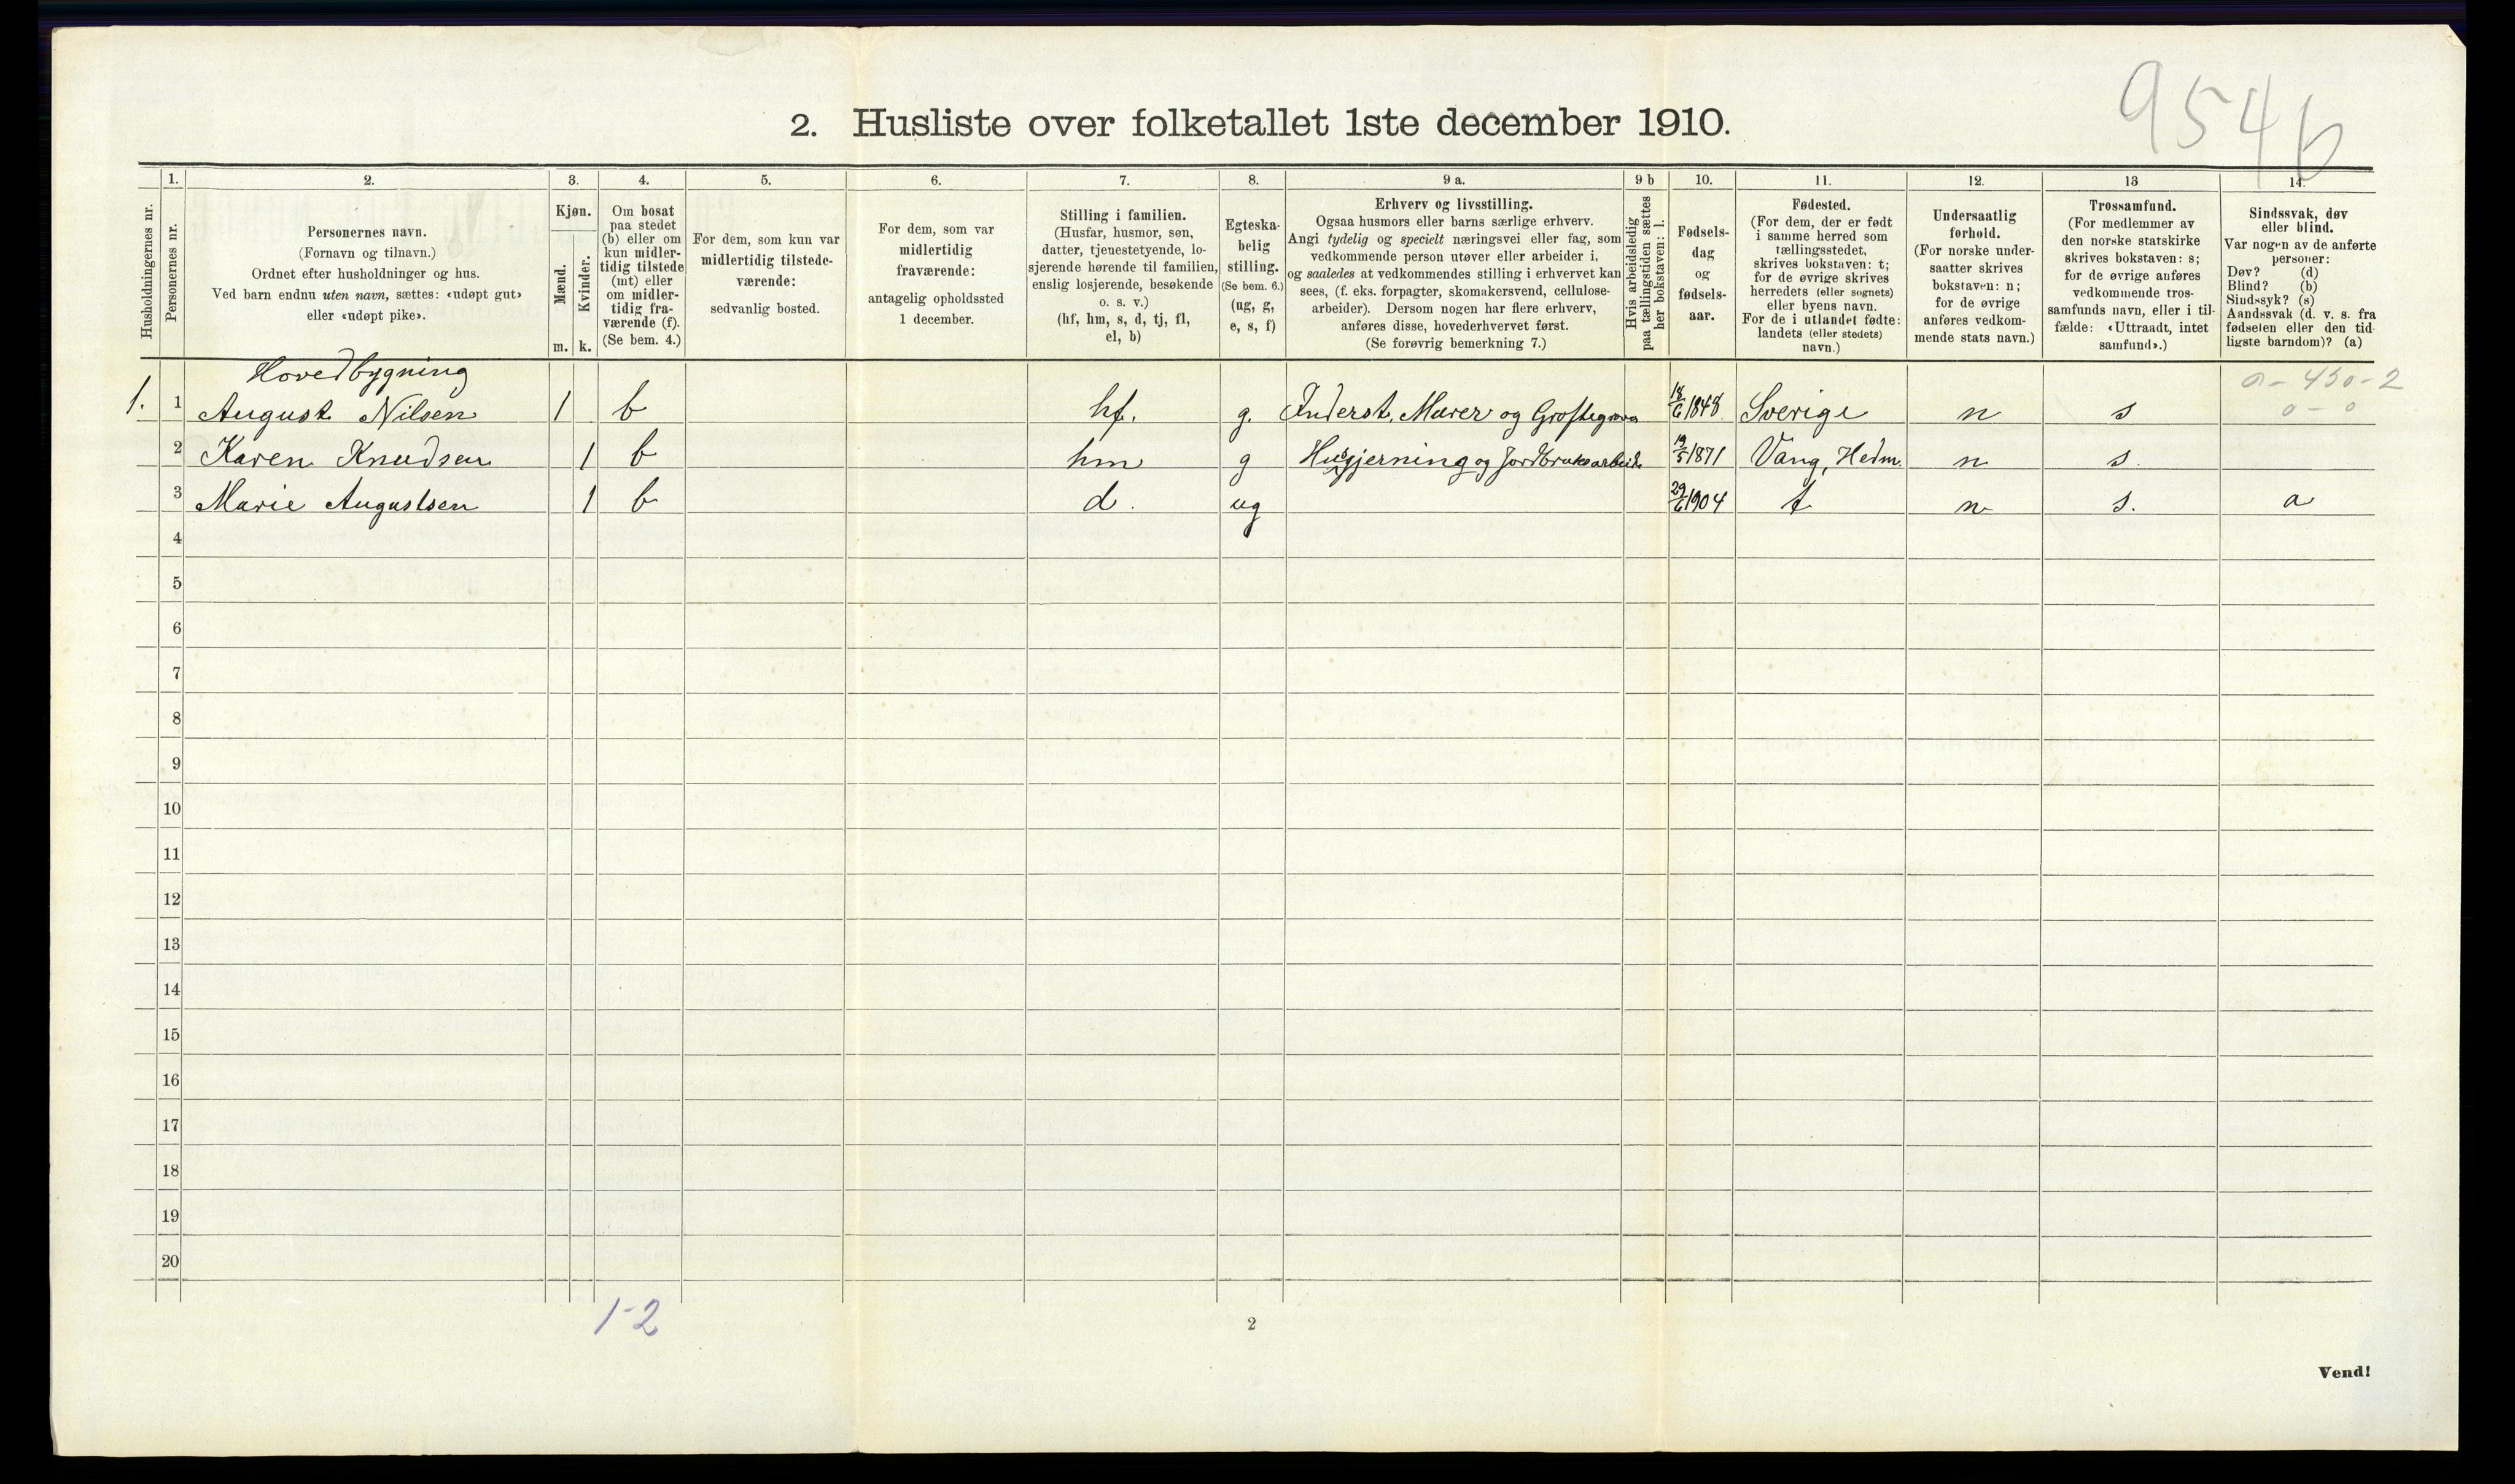 9546
2. Husliste over folketallet 1ste december 1910.
Husholdningernes nr.
1.
Personernes nr.
2.
Personernes navn.
(Fornavn og tilnavn.)
Ordnet efter husholdninger og hus.
Ved barn endnu uten navn, sættes: «udøpt gut»
eller «udøpt pike».
3.
Kjøn.
Mænd.
Kvinder.
m. k.
4.
Om bosat
paa stedet
(b) eller om
kun midler-
tidig tilstede
(mt) eller
om midler-
tidig fra-
værende (f).
(Se bem. 4.)
5.
For dem, som kun var
midlertidig tilstede-
værende:
sedvanlig bosted.
6.
For dem, som var
midlertidig
fraværende:
antagelig opholdssted
1 december.
7.
Stilling i familien.
(Husfar, husmor, søn,
datter, tjenestetyende, lo-
sjerende hørende til familien,
enslig losjerende, besøkende
o. s. v.)
(hf, hm, s, d, tj, fl,
el, b)
8.
Egteska-
belig
stilling.
(Se bem. 6.)
(ug, g,
e, s, f)
9 a.
Erhverv og livsstilling.
Ogsaa husmors eller barns særlige erhverv.
Angi tydelig og specielt næringsvei eller fag, som
vedkommende person utøver eller arbeider i,
og saaledes at vedkommendes stilling i erhvervet kan
sees, (f. eks. forpagter, skomakersvend, cellulose-
arbeider). Dersom nogen har flere erhverv,
anføres disse, hovederhvervet først.
(Se forøvrig bemerkning 7.)
9 b
Hvis arbeidsledig
paa tællingstiden sættes
her bokstaven: l.
10.
Fødsels-
dag
og
fødsels-
aar.
11.
Fødested.
(For dem, der er født
i samme herred som
tællingsstedet,
skrives bokstaven: t;
for de øvrige skrives
herredets (eller sognets)
eller byens navn.
For de i utlandet fødte:
landets (eller stedets)
navn.)
12.
Undersaatlig
forhold.
(For norske under-
saatter skrives
bokstaven: n;
for de øvrige
anføres vedkom-
mende stats navn.)
13
Trossamfund.
(For medlemmer av
den norske statskirke
skrives bokstaven: s;
for de øvrige anføres
vedkommende tros-
samfunds navn, eller i til-
fælde: «Uttraadt, intet
samfund».)
14.
Sindssvak, døv
eller blind.
Var nogen av de anførte
personer:
Døv? (d)
Blind? (b)
Sindssyk? (s)
Aandssvak (d. v. s. fra
fødselen eller den tid-
ligste barndom)? (a)
Hovedbygning
0 - 450 - 2
0 - 0
1. 1 August Nilsen 1 b hf. g. Inderst, Murer og Grøftegraver 18/6 1848 Sverige n s
2 Karen Knudsen 1 b hm g Husgjerning og Jordbruksarbeide 19/5 1871 Vang, Hedm. n s.
3 Marie Augustsen 1 b d. ug 29/6 1904 t n s. a
4
5
6
7
8
9
10
11
12
13
14
15
16
17
18
19
20
1-2
2
Vend!